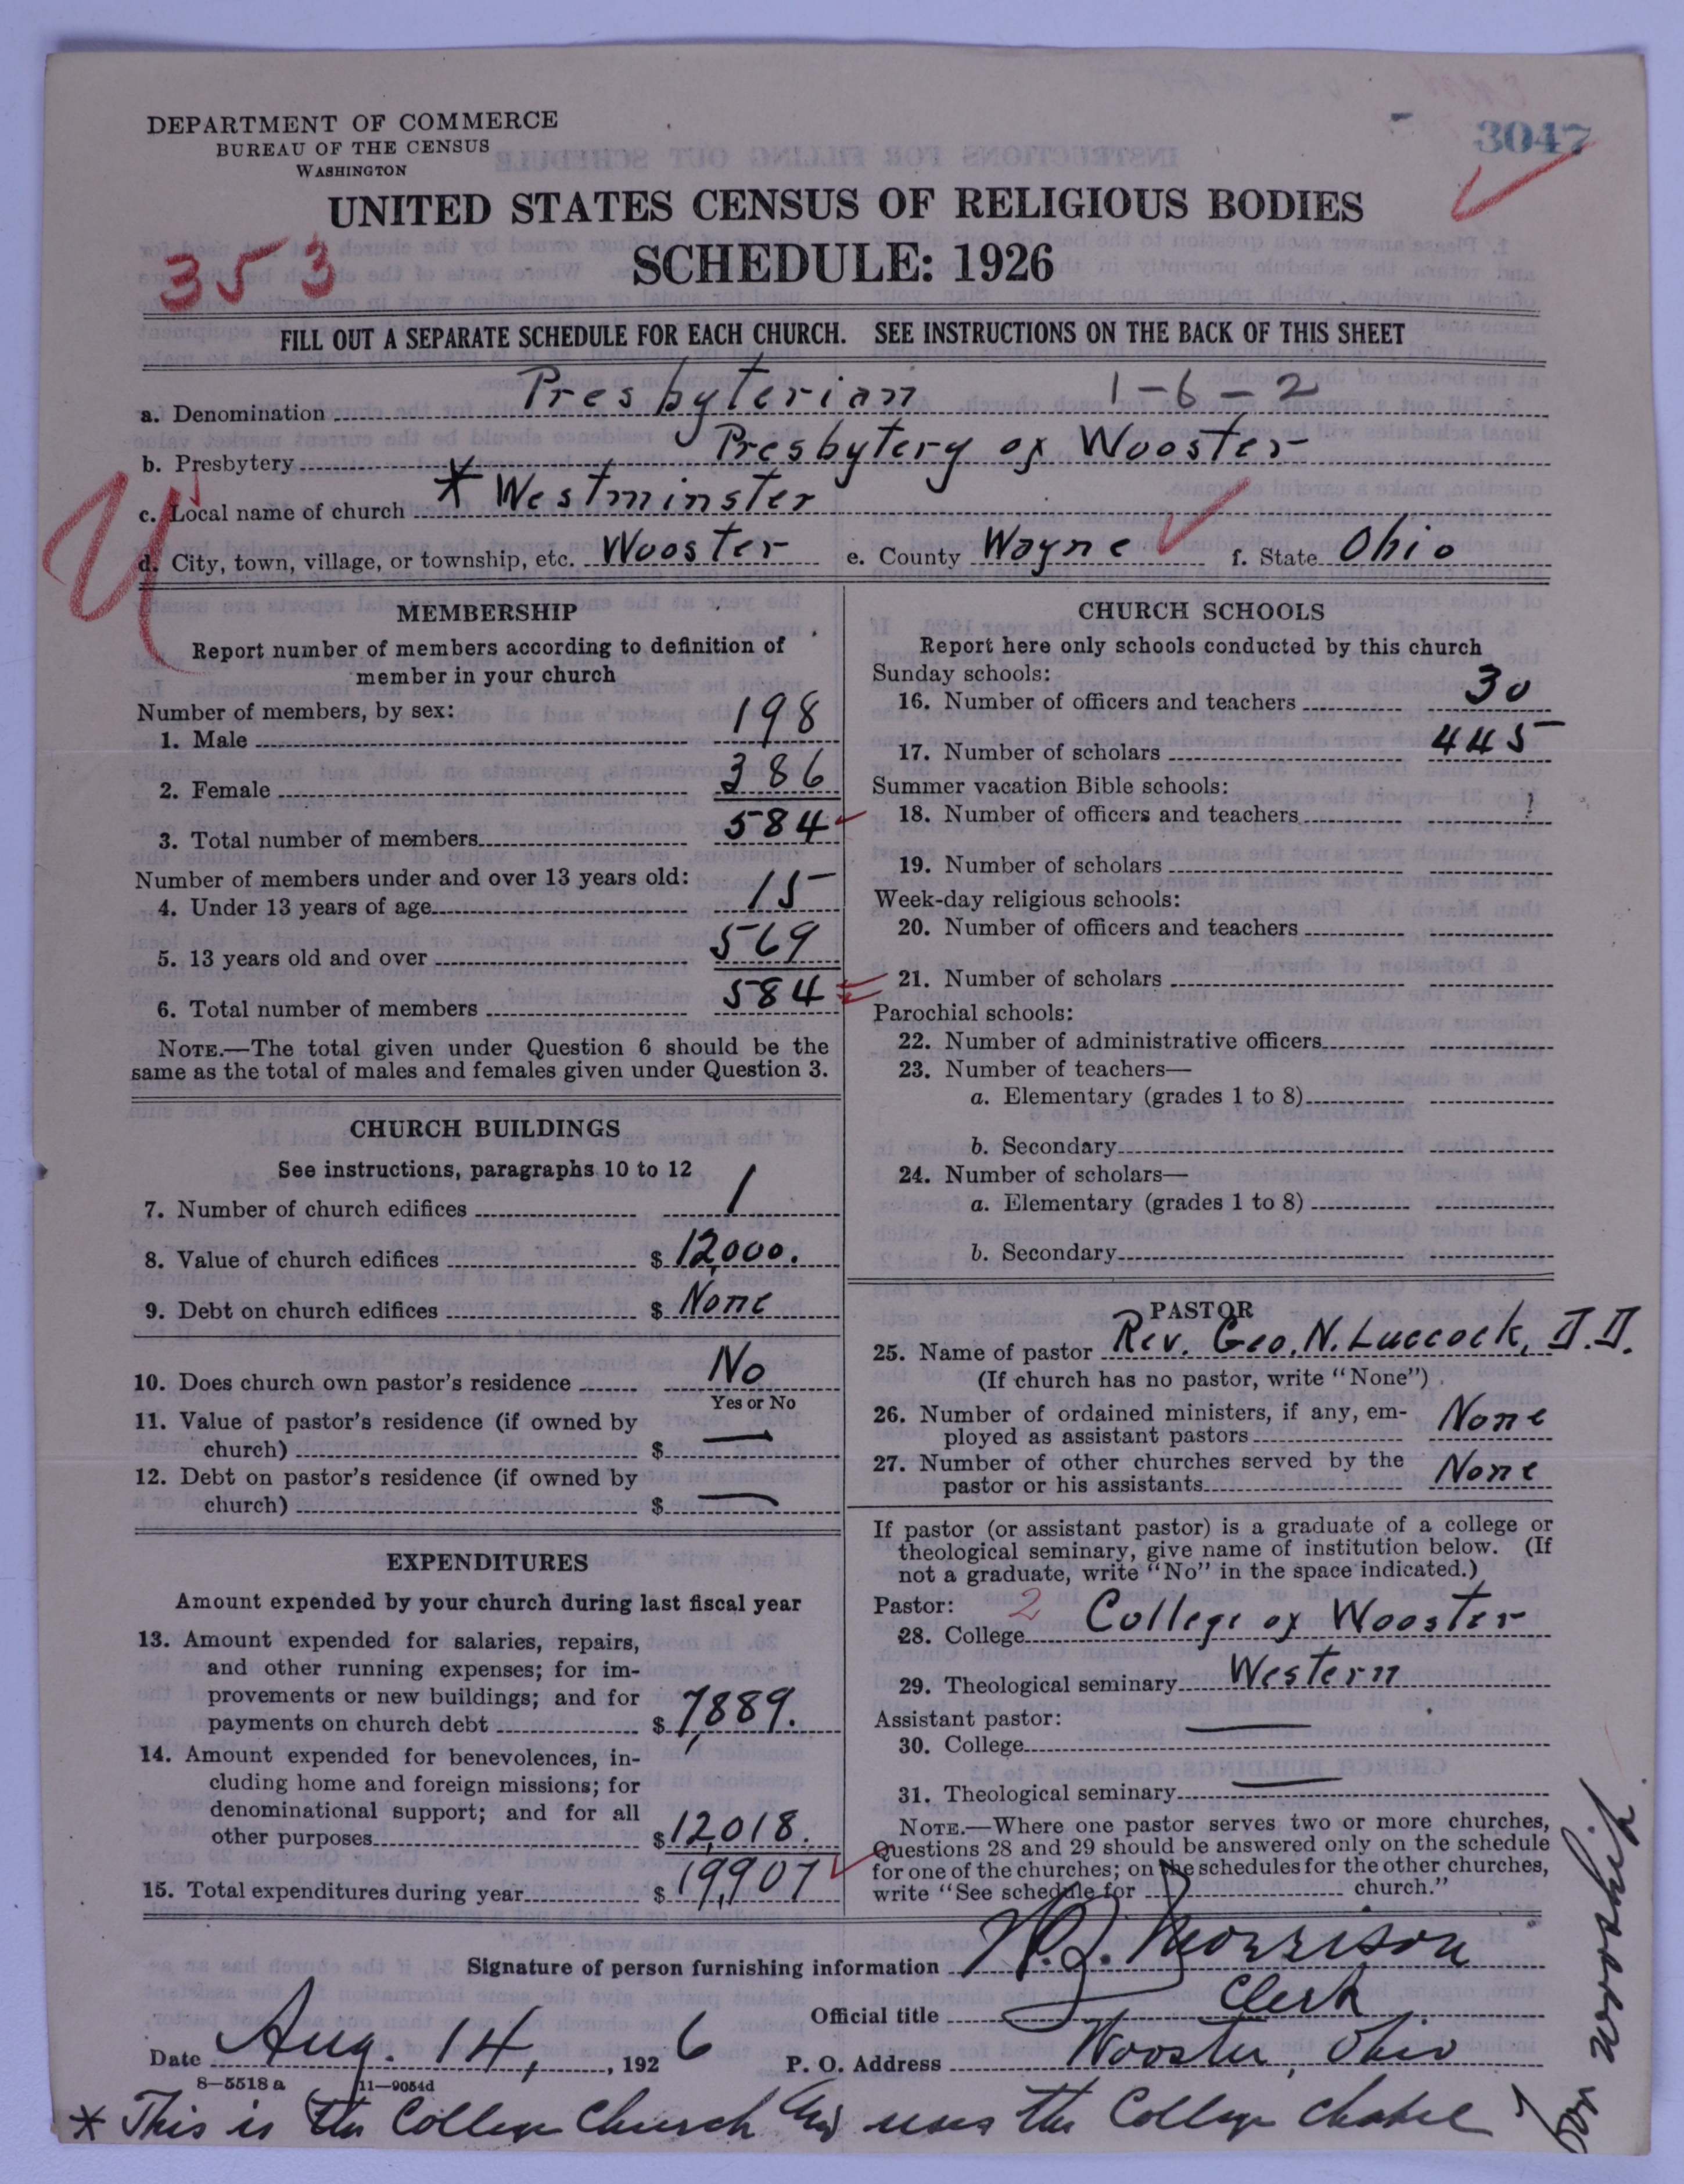 DEPARTMENT OF COMMERCE
BUREAU OF THE CENSUS
WASHINGTON
3047
UNITED STATES CENSUS OF RELIGIOUS BODIES
SCHEDULE: 1926
353
FILL OUT A SEPARATE SCHEDULE FOR EACH CHURCH. SEE INSTRUCTIONS ON THE BACK OF THIS SHEET
a. Denomination Presbyterian 1-6-2
b. Presbytery Presbytery of Wooster
c. Local name of church * Westminster
d. City, town, village, or township, etc. Wooster e. County Wayne f. State Ohio
MEMBERSHIP
Report number of members according to definition of
member in your church
Number of members, by sex:
1. Male 198
2. Female 386
3. Total number of members 584
Number of members under and over 13 years old:
4. Under 13 years of age 15
5. 13 years old and over 569
6. Total number of members 584
NOTE.—The total given under Question 6 should be the
same as the total of males and females given under Question 3.
CHURCH BUILDINGS
See instructions, paragraphs 10 to 12
7. Number of church edifices 1
8. Value of church edifices $ 12,000.
9. Debt on church edifices $ None
10. Does church own pastor's residence No
Yes or No
11. Value of pastor's residence (if owned by
church) $ —
12. Debt on pastor's residence (if owned by
church) $ —
EXPENDITURES
Amount expended by your church during last fiscal year
13. Amount expended for salaries, repairs,
and other running expenses; for im-
provements or new buildings; and for
payments on church debt $ 7,889.
14. Amount expended for benevolences, in-
cluding home and foreign missions; for
denominational support; and for all
other purposes $ 12,018.
15. Total expenditures during year $ 19,907
CHURCH SCHOOLS
Report here only schools conducted by this church
Sunday schools:
16. Number of officers and teachers 30
17. Number of scholars 445
Summer vacation Bible schools:
18. Number of officers and teachers
19. Number of scholars
Week-day religious schools:
20. Number of officers and teachers
21. Number of scholars
Parochial schools:
22. Number of administrative officers
23. Number of teachers—
a. Elementary (grades 1 to 8)
b. Secondary
24. Number of scholars—
a. Elementary (grades 1 to 8)
b. Secondary
PASTOR
25. Name of pastor Rev. Geo. N. Luccock, D.D.
(If church has no pastor, write "None")
26. Number of ordained ministers, if any, em-
ployed as assistant pastors None
27. Number of other churches served by the
pastor or his assistants None
If pastor (or assistant pastor) is a graduate of a college or
theological seminary, give name of institution below. (If
not a graduate, write "No" in the space indicated.)
Pastor: 2
28. College College of Wooster
29. Theological seminary Western
Assistant pastor:
30. College —
31. Theological seminary —
NOTE.—Where one pastor serves two or more churches,
Questions 28 and 29 should be answered only on the schedule
for one of the churches; on the schedules for the other churches,
write "See schedule for church."
Signature of person furnishing information Morrison
Official title Clerk
Date Aug. 14, 1926 P. O. Address Wooster, Ohio
8—5518 a 11—9054d
* This is the College Church and uses the College chapel
for worship.